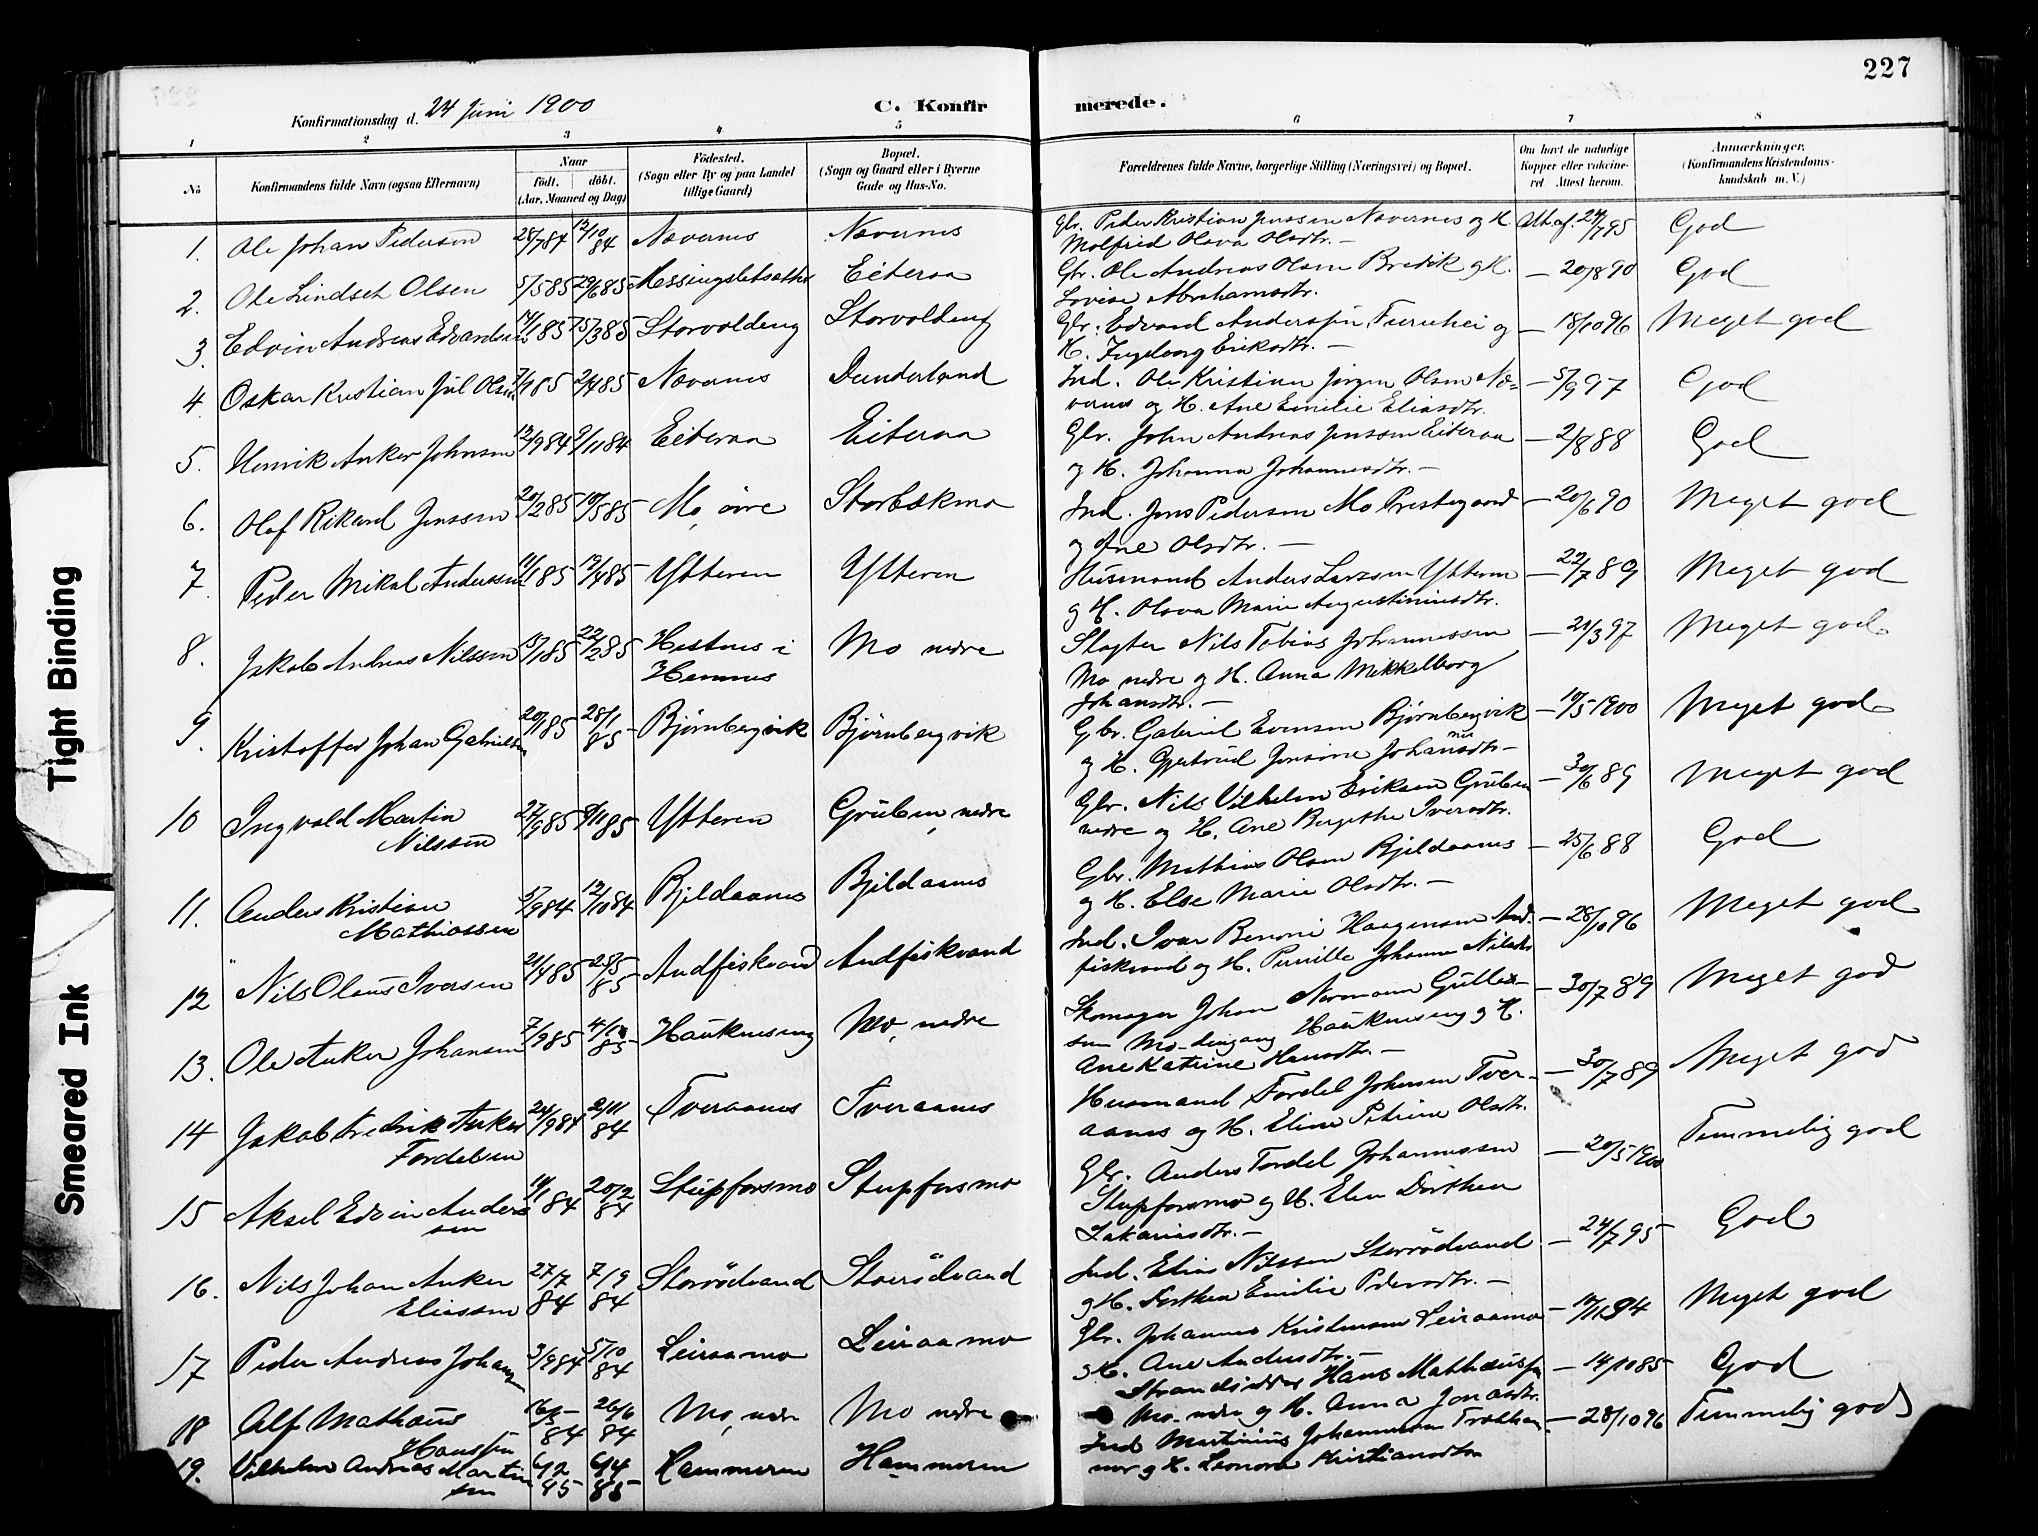 227
Konfirmationsdag d. 24 Juni 1900
C. Konfirmerede.
1 2 3 4 5 6 7 8
No
Konfirmandens fulde Navn (ogsaa Efternavn)
Naar
födt. döbt.
(Aar, Maaned og Dag)
Födested.
(Sogn eller By og paa Landet
tillige Gaard)
Bopæl.
(Sogn og Gaard eller i Byerne
Gade og Hus-No.
Forældrenes fulde Navne, borgerlige Stilling (Næringsvei) og Bopæl.
Om havt de naturlige
Kopper eller vakcine-
ret. Attest herom.
Anmærkninger.
(Konfirmandens Kristendoms-
kundskab m. V.)
1. Ole Johan Pedersen 28/7 84 12/10 84 Nævernes Nævernes Gbr. Peder Kristian Jenssen Nævernes og H. Att. af 24/7 95 God
Molfrid Olava Olsdtr. —
2. Ole Lindseth Olsen 5/5 85 29/6 85 Messingsletsætter Eiteraa Gbr. Ole Andreas Olsen Bredik og H. — 20/8 90 God
Lovise Abrahamsdtr.
3. Edvin Andreas Edvardsen 14/1 85 15/3 85 Storvoldeng Storvoldeng Gbr. Edvard Anderssen Furuhei og — 18/10 96 Meget god
H. Ingeborg Eriksdtr. —
4. Oskar Kristian Jul Olsen 7/1 85 2/4 85 Nævernes Dunderland Ind. Ole Kristian Jörgen Olsen Næ= — 5/9 97 God
vernes og H. Ane Emilie Eliasdtr.
5. Henrik Anker Johnsen 12/9 84 9/11 84 Eiteraa Eiteraa Gbr. John Andreas Jenssen Eiteraa — 2/8 88 God
og H. Johanna Johannesdtr. —
6. Olaf Rikard Jenssen 20/2 85 10/5 85 Mo, övre Storbækmo Ind. Jens Pedersen Mo Prestegaard — 20/6 90 Meget god
og Ane Olsdtr. —
7. Peder Mikal Anderssen 11/1 85 12/4 85 Ytteren Ytteren Husmand Anders Larssen Ytteren — 22/7 89 Meget god
og H. Olava Marie Augustiniusdtr.
8. Jakob Andreas Nilssen 13/1 85 22/2 85 Hestnes i Mo nedre Slagter Nils Tobias Johannessen — 21/3 97 Meget god
Hemnes Mo nedre og H. Anna Mikkelborg
Johansdtr. —
9. Kristoffer Johan Gabrielsen 20/1 85 28/1 85 Bjørnbergvik Bjørnbergvik Gbr. Gabriel Evensen Bjørnbergvik — 10/5 1900 Meget god
og H. Gjertrud Jensine Johannesdtr —
10 Ingvald Martin 27/9 85 8/11 85 Ytteren Gruben, nedre Gbr. Nils Vilhelm Eriksen Gruben — 30/6 89 Meget god
Nilssen nedre og H. Ane Bergethe Iversdtr.
11. Anders Kristian 5/9 84 12/10 84 Bjeldaanes Bjeldaanes Gbr. Mathias Olsen Bjeldaanes — 25/6 88 God
Mathiassen og H. Else Marie Olsdtr. —
12 Nils Olaus Iversen 21/4 85 28/5 85 Andfiskvand Andfiskvand Ind. Ivar Benoni Haagensen And. — 28/10 96 Meget god
fiskvand og H. Pernille Johanna Nilsdtr
13. Ole Anker Johansen 7/9 85 Haukeneseng Mo, nedre Skomager Johan Normann Gulles- — 30/7 89 Meget god
sen Mo Haukneseng og H.
Ane Katrine Hansdtr. —
14 Jakob Fredrik Anker 24/9 84 2/11 84 Tveraanes Tveraanes Husmand Fordel Johnsen Tver- — 30/7 89 Meget god
Fordelsen aanes og H. Eline Petrine Olsdtr.
15 Aksel Edvin Anders 14/1 84 20/2 84 Stupforsmo Stupforsmo Gbr. Anders Tordel Johannessen — 20/5 1900 Temmelig god
sen Stupforsmo og H. Elen Dorthea
Zakariasdtr. —
16. Nils Johan Anker 27/7 84 7/9 84 Storrödvand Storrödvand Ind. Elias Nilssen Storrödvand — 24/7 95 God
Eliassen og H. Dorthea Emilie Pedersdtr. —
17 Peder Andreas Johansen 3/9 84 5/10 84 Leiraamo Leiraamo Gbr. Johannes Kristensen Leiraamo — 94 Meget god
og H. Ane Andersdtr. —
18 Alf Mathæus 16/5 84 26/6 84 Mo, nedre Mo nedre Strandsidder Hans Mathæussen — 14/10 85 God
Hanssen Mo nedre og H. Anna Jonasdtr.
19. Vilhelm Andreas Martin Hammeren Hammeren Ind Martinius Johannessen — 28/10 96 Temmelig god
sen og H. Leonora Kristiansdtr
Tight Binding
Smeared Ink